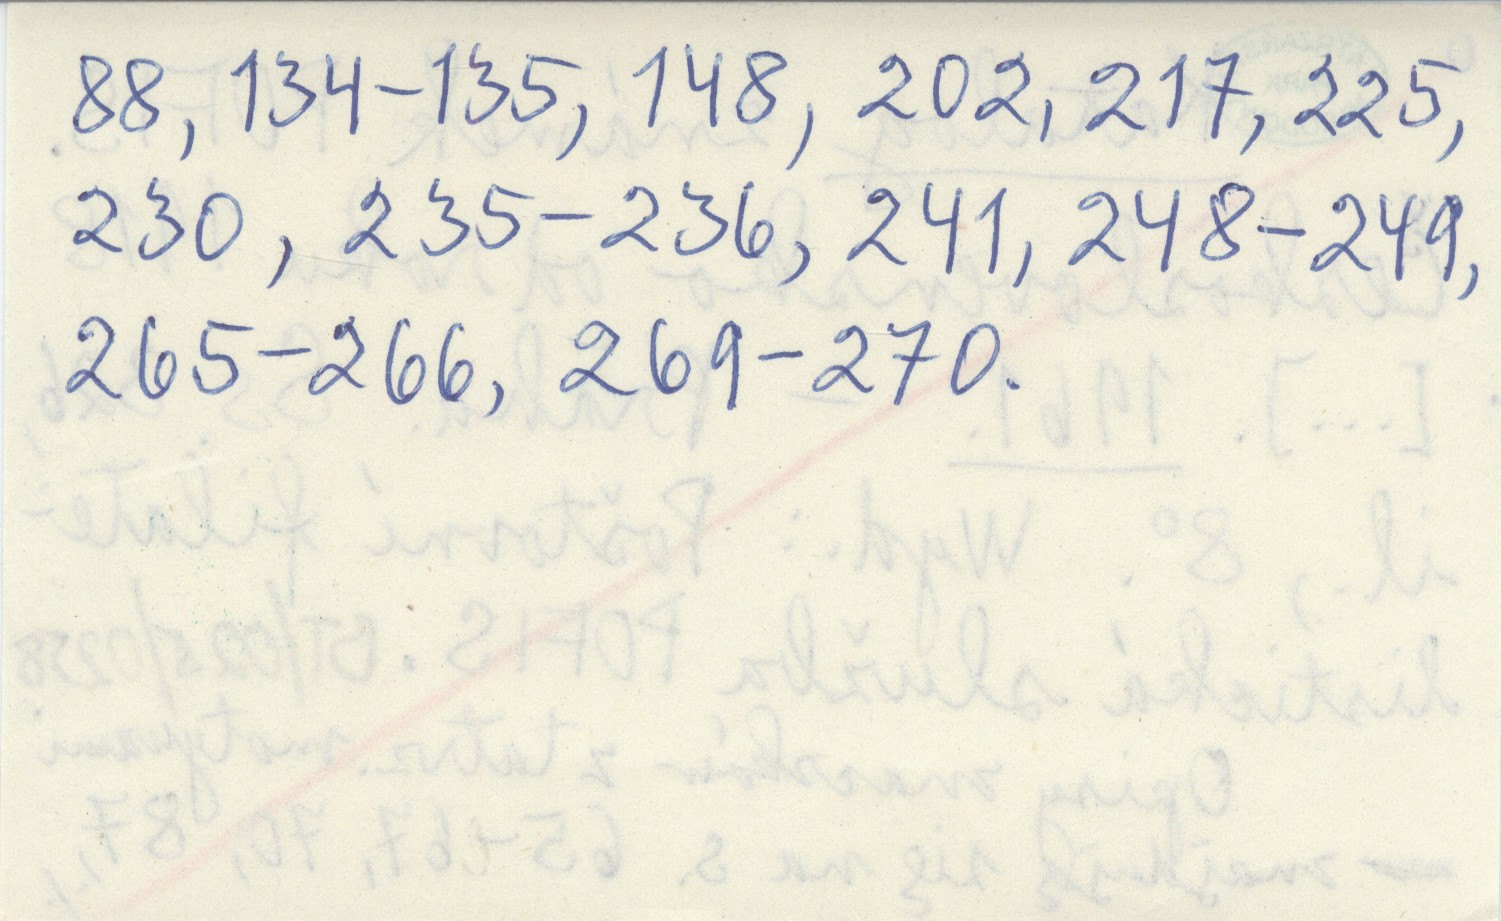 88, 134-135, 148, 202, 217, 225,
230, 235-236, 241, 248-249,
265-266, 269-270.